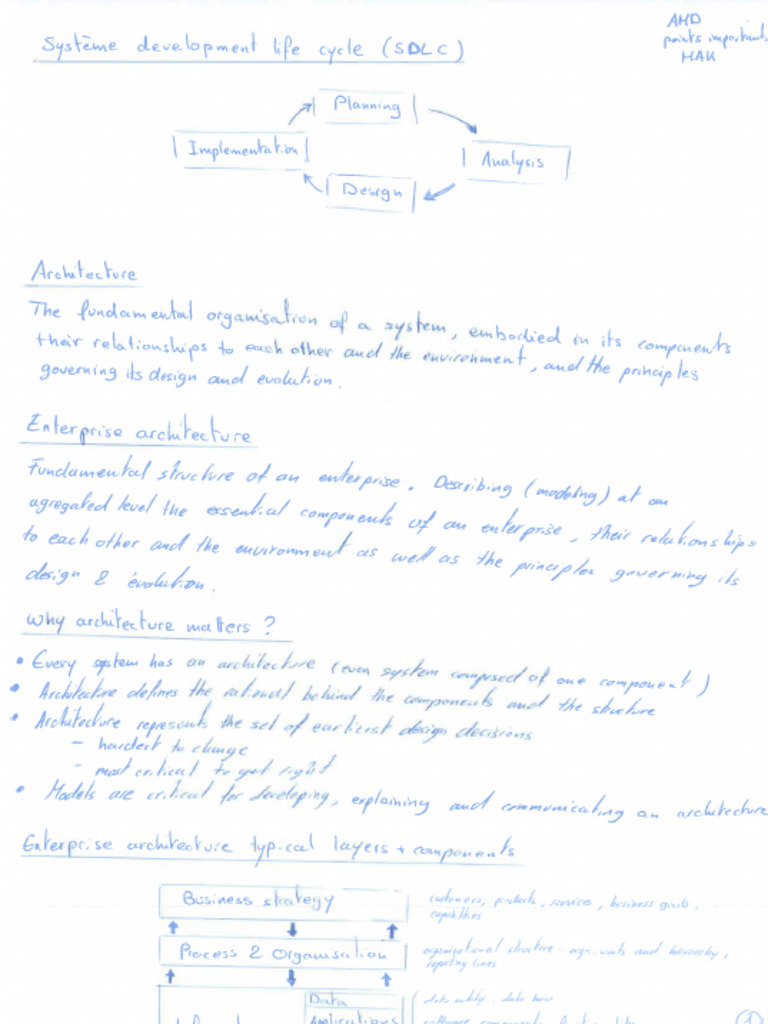 AMD
Système development life cycle (SDLC)
points important
MAK
Planning
Implementation
Analysis
Design
Architecture
The fundamental organisation of a system, embodied in its components
their relationships to each other and the environment, and the principles
governing its design and evolution.
Enterprise architecture
Fundamental structure of an enterprise. Describing (modeling) at an
agregated level the essential components of an enterprise, their relationships
to each other and the environment as well as the principles governing its
design & évolution.
Why architecture matters ?
• Every system has an architecture (even system composed of one component)
• Architecture defines the rational behind the components and the structure
• Architecture represents the set of earlierst design decisions
- hardest to change
- most critical to get right
• Models are critical for developing, explaining and communicating an architecture
Enterprise architecture typical layers + components
Business strategy
customers, products, services, business goals,
capabilities
Process & Organisation
organizational structure units and hierarchy,
reporting lines
Data
data entity, data base
Applications
software components
1